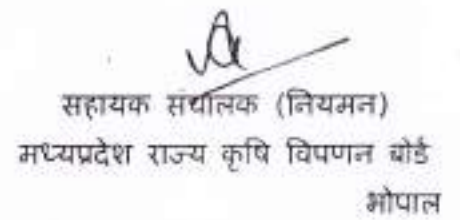 सहायक संचालक (नियमन)
मध्यप्रदेश राज्य कृषि विपणन बोर्ड
भोपाल